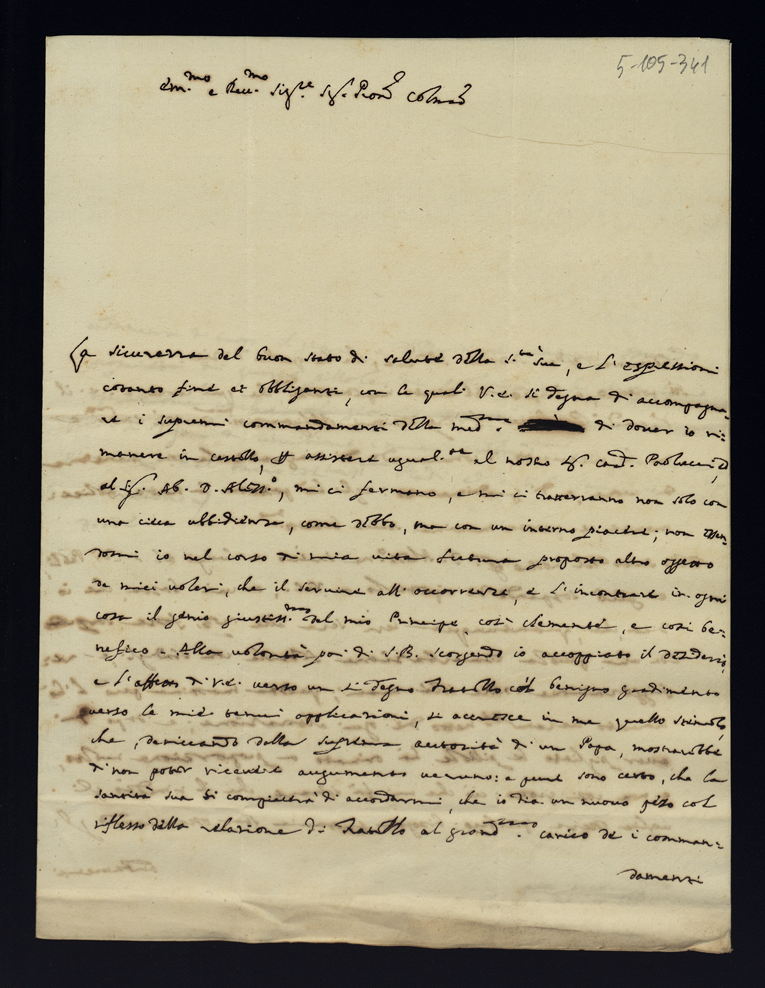 5-105-341
Em.mo e Rev.mo Sig.re Sig. Pron Colmo
La sicurezza del buon stato di salute della S.tà Sua, e l'espressioni
cotanto fine et obbliganti, con le quali V.E. si degna di accompagna-
re i supremi commandamenti della med.ma di dover io ri-
manere in castello, et assistere ugual.te al nostro Sig. Card. Paolucci, et
al Sig. Ab. D. Aless.o, mi ci fermano, e mi ci tratterranno non solo con
una cieca ubbidienza, come debbo, ma con un interno piacere; non essen-
domi io nel corso di mia vita futura proposto altro oggetto
de miei voleri, che il servire all'occorrenze, e l'incontrare in ogni
cosa il genio giustiss.mo del mio Principe, così clemente, e così be-
nefico. Alla volontà poi di S.B. scorgendo io accoppiato il desiderio,
e l'affetto di V.E. verso un sì degno Fratello col benigno gradimento
verso le mie tenui applicazioni, si accresce in me quello stimolo,
che, derivando dalla suprema autorità di un Papa, mostrarebbe
di non poter ricevere augumento veruno: e pure sono certo, che la
santità sua si compiacerà di accordarmi, che io dia un nuovo peso col
riflesso della relazione di Fratello al grand.mo carico de i comman-
damenti